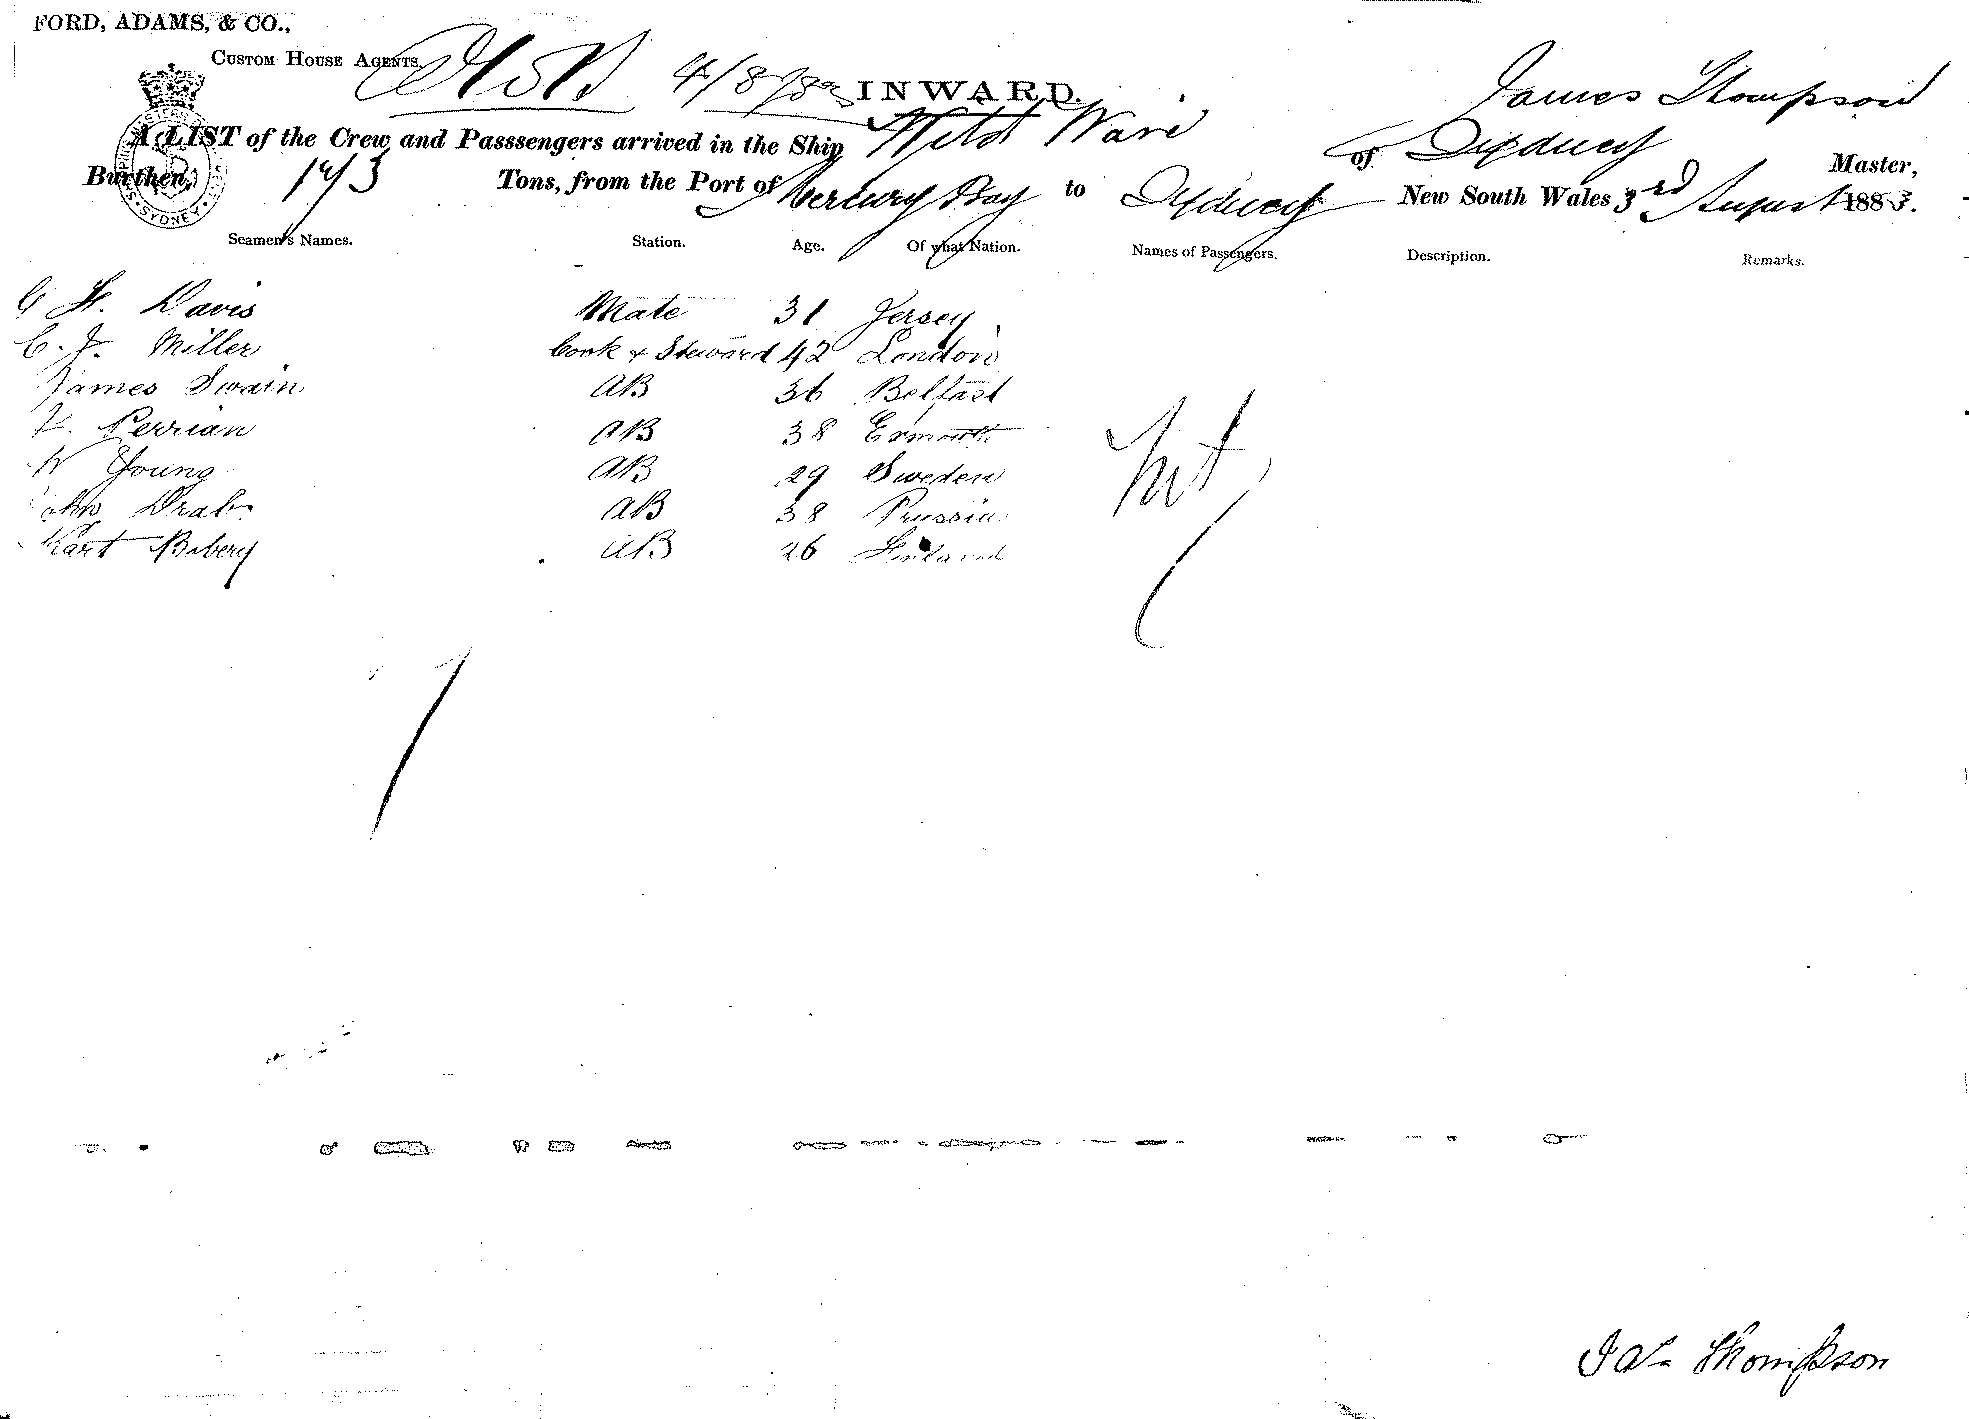 FORD, ADAMS, & CO.,
CUSTOM HOUSE AGENTS.
4/8/83 INWARD. James Thompson
A LIST of the Crew and Passsengers arrived in the Ship Wild Wave of Sydney Master,
Burthen, 173 Tons, from the Port of Mercury Bay to Sydney New South Wales 3rd August 1883.
Seamen's Names. Station. Age. Of what Nation. Names of Passengers. Description. Remarks.
Davis Mate 31 Jersey
C. J. Miller Cook & Steward 42 London
James Swain AB 36 Belfast
Perrian AB 38 Exmouth
W Young AB 29 Sweden
John Drabs AB 38 Prussia
Kart Boberg AB 26 Finland
SYDNEY
Jas Thompson